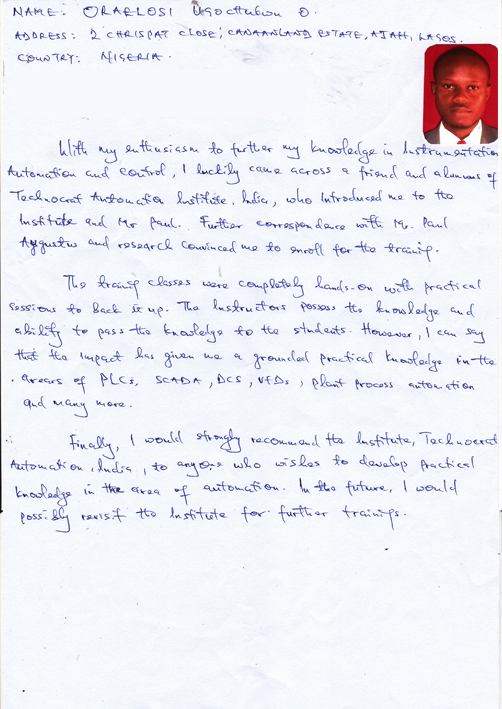 NAME: ORAELOSI Ugochukwu O.
ADDRESS: 2 CHRISPAT CLOSE, CANAANLAND ESTATE, AJAH, LAGOS.
COUNTRY: NIGERIA.
With my enthusiasm to further my knowledge in Instrumentation
Automation and control, I luckily came across a friend and alumnus of
Technocrat Automation Institute, India, who introduced me to the
Institute and Mr Paul. Further correspondence with Mr. Paul
Augustus and research convinced me to enroll for the training.
The training classes were completely hands-on with practical
sessions to back it up. The Instructors possess the knowledge and
ability to pass the knowledge to the students. However, I can say
that the impact has given me a grounded practical knowledge in the
arears of PLCs, SCADA, DCS, VFDs, plant process automation
and many more.
Finally, I would strongly recommend the Institute, Technocrat
Automation, India, to anyone who wishes to develop practical
knowledge in the area of automation. In the future, I would
possibly revisit the Institute for further trainings.